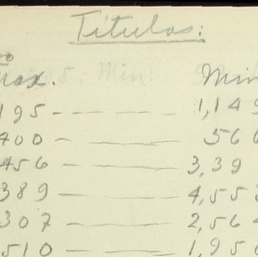 Títulos:
Max. Min
195 — 1,149
400 — 566
456 — 3,39
389 — 4,558
307 — 2,564
510 — 1,950